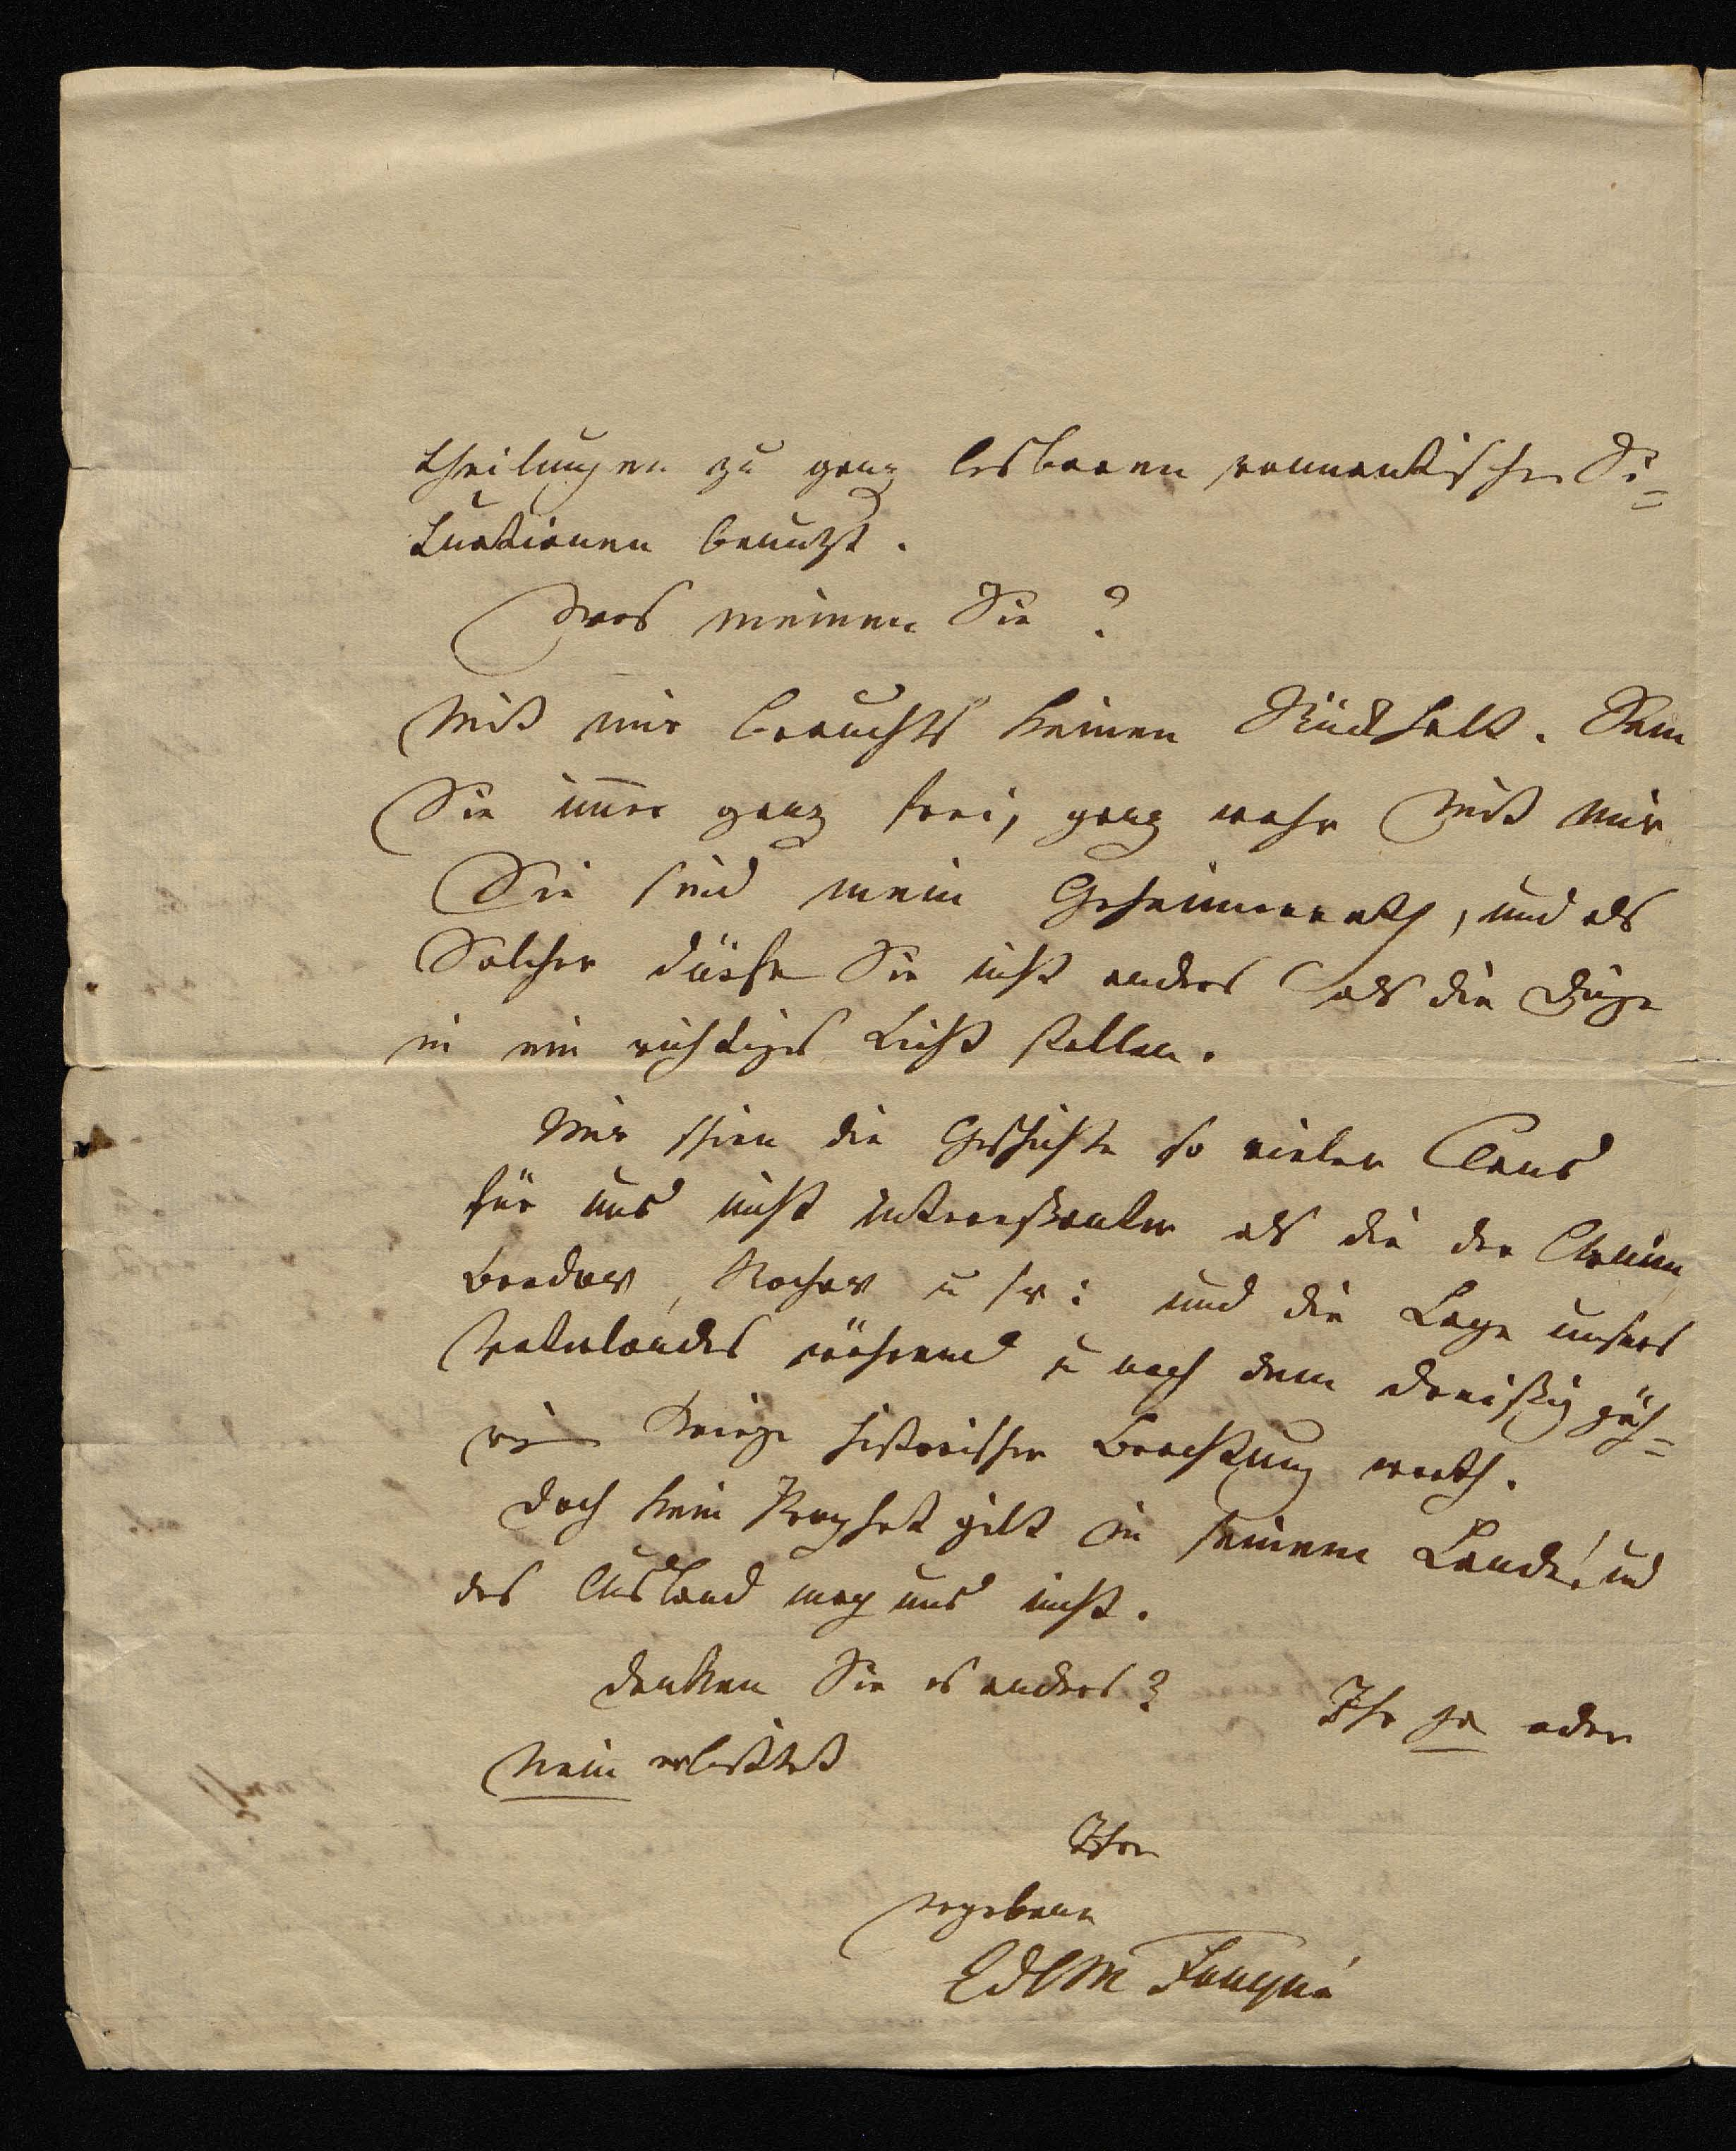 theilungen zu ganz lesbaren romantischen Si=
tuationen benutzt.
Was meinen Sie?
Mit mir brauchts keinen Rückhalt. Sein
Sie im̄er ganz frei, ganz wahr mit mir
Sie sind mein Geheimerrath, und als
Solcher dürfen Sie nicht anders als die Dinge
in ein richtiges Licht stellen.
Mir schien die Geschichte so vieler Clans
für uns nicht interessanter als die der Arnim
Bredow, Rochow u s w: und die Lage unsers
Vaterlandes während u nach dem dreißig jäh=
rigen Kriege historischer Beachtung werth.
Doch kein Prophet gilt in seinem Lande! und
das Ausland mag uns nicht.
Denken Sie es anders?
Ihr ja oder
Nein erbittet
Ihre
ergebene
CdlM Fouqué